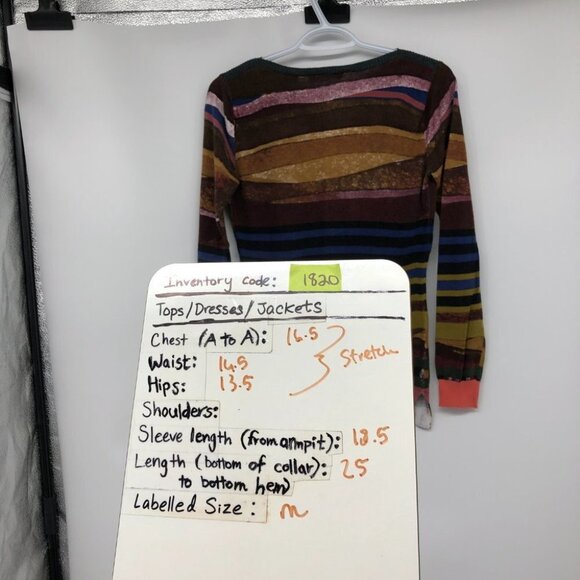 Inventory code: 1820
Tops/Dresses/Jackets
Chest (A to A): 16.5
Waist: 14.5
Stretch
Hips: 13.5
Shoulders:
Sleeve length (from armpit): 18.5
Length (bottom of collar): 25
to bottom hem)
Labelled Size: m